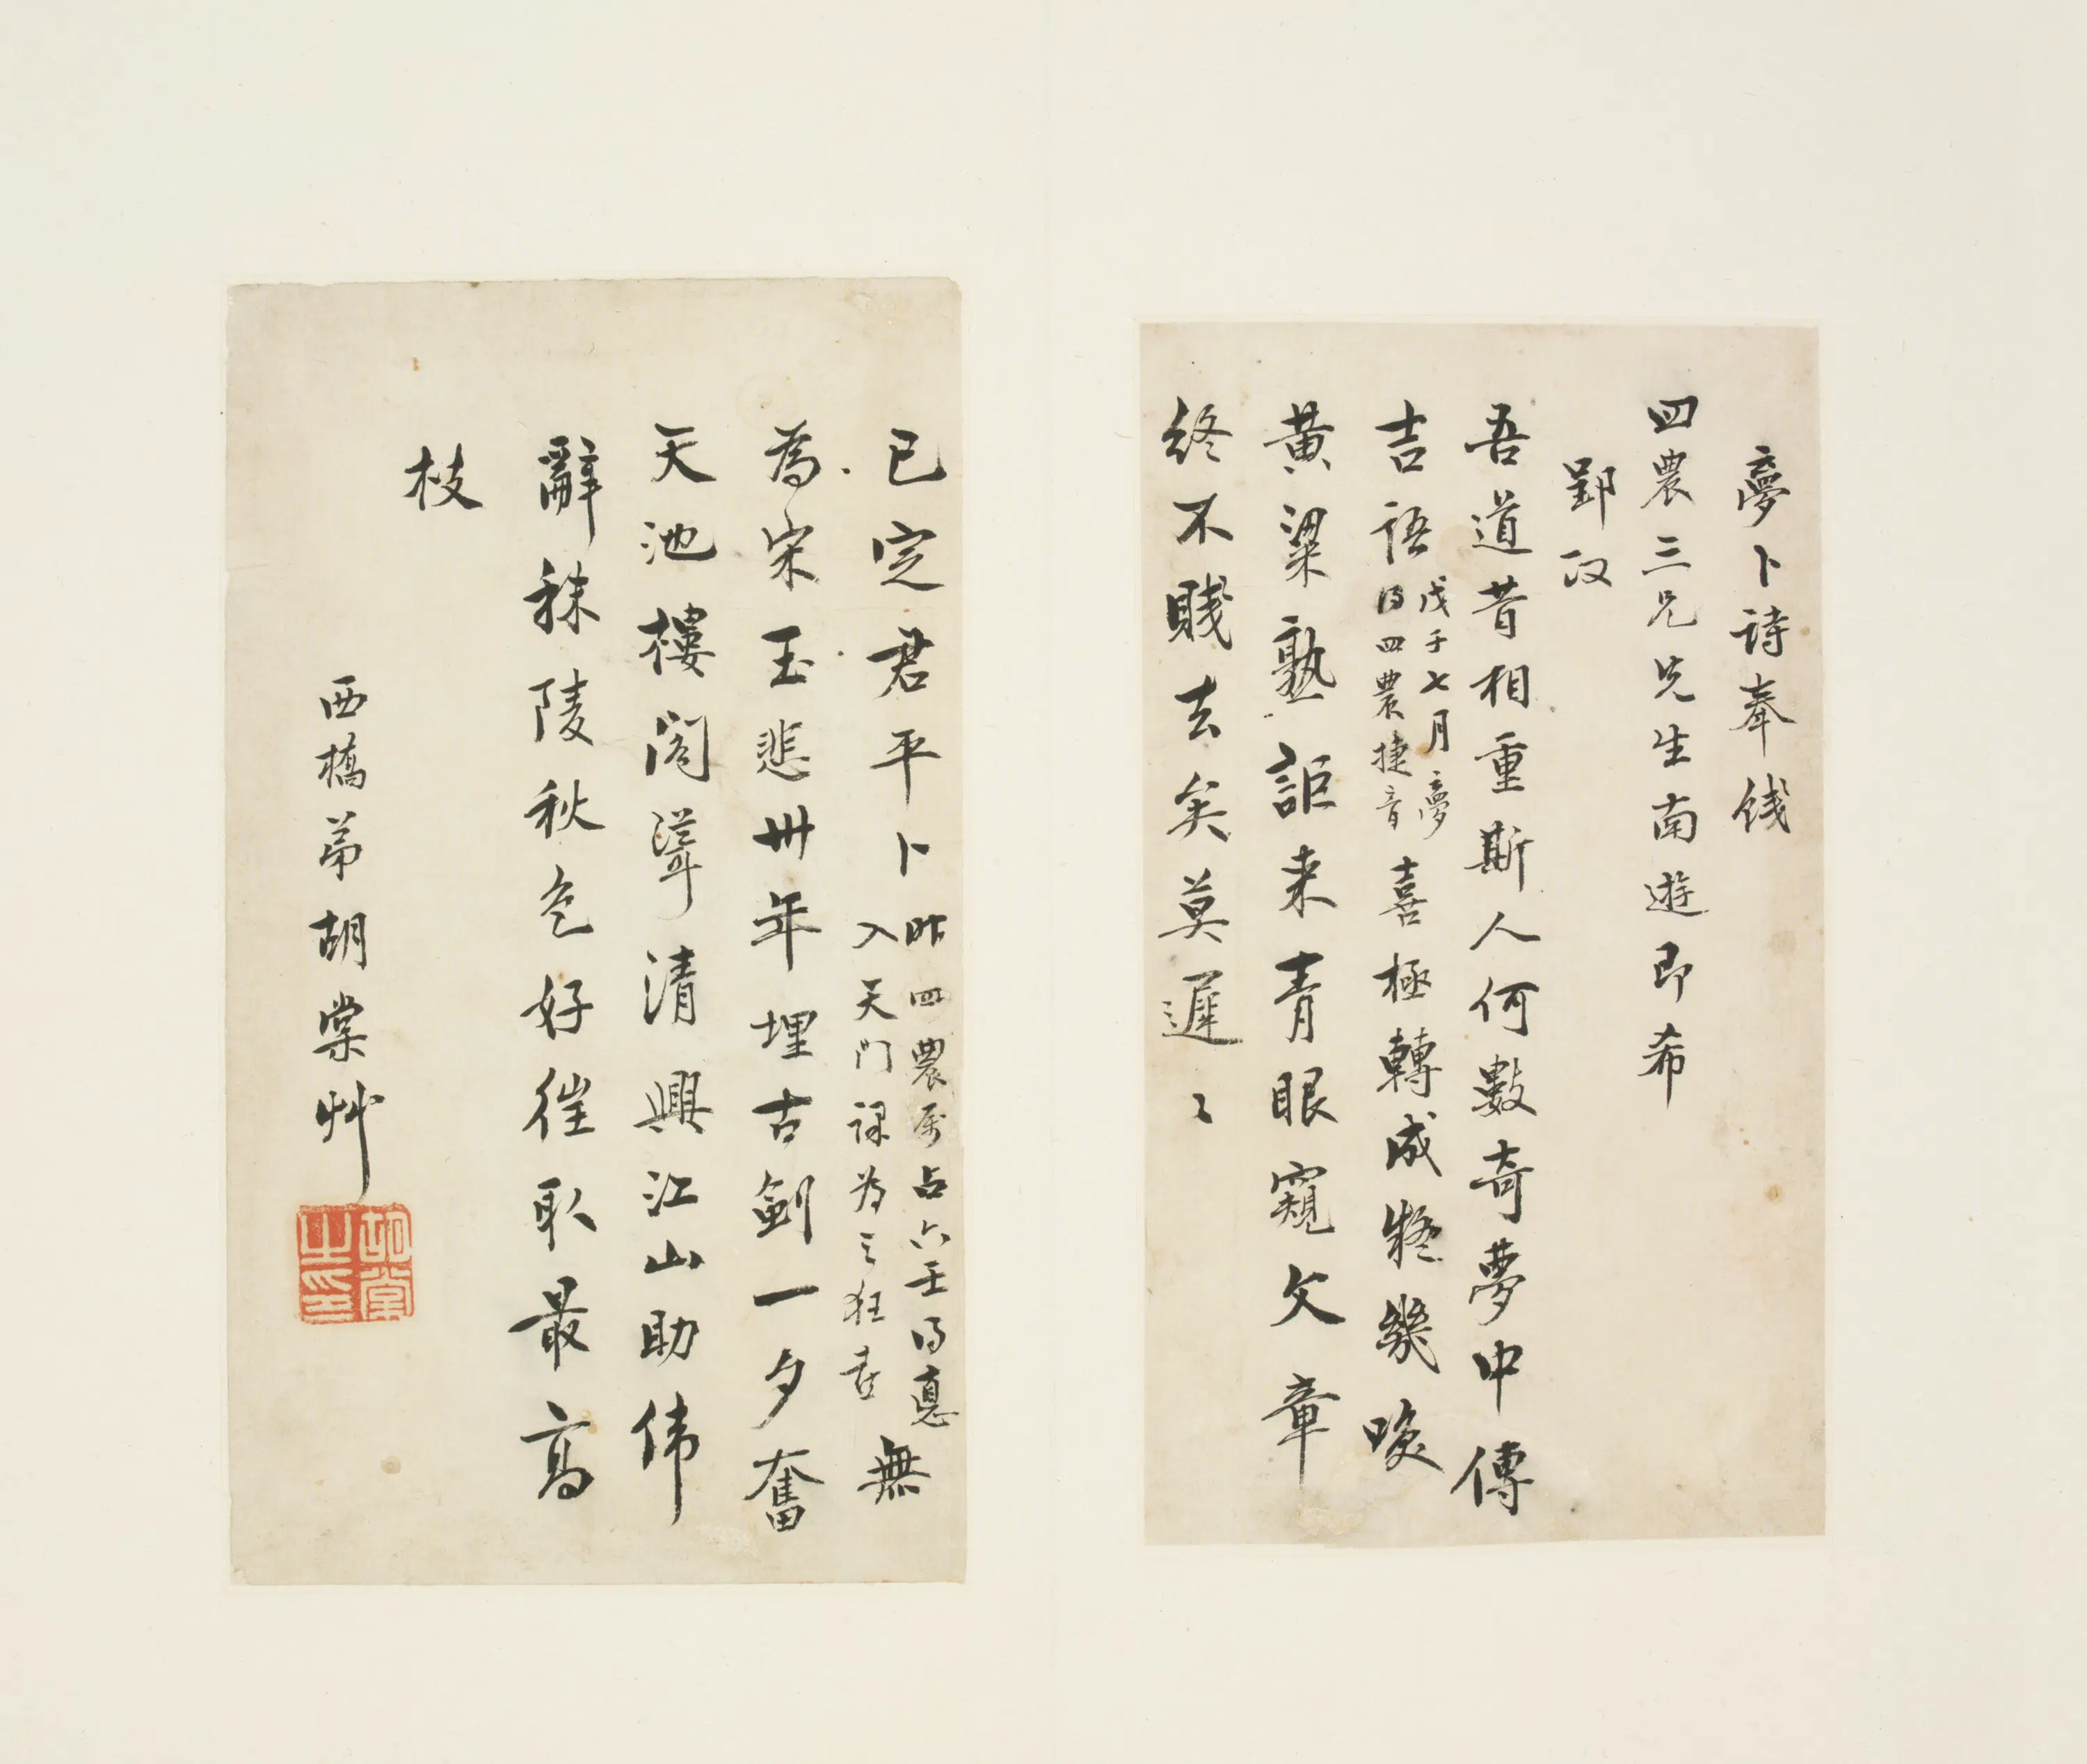 夢卜詩奉餞
四農三兄先生南遊即希
郢政
吾道昔相重斯人何數奇夢中傳
吉語戊子七月夢
得四農捷音喜極轉成癡幾喚
黃粱熟詎来青眼窺文章
終不賤去矣莫遲〻
已定君平卜昨四農属占六壬得惪
入天門課為之狂喜無
為宋玉悲卅年埋古劍一夕奮
天池樓閣聳清興江山助偉
辭秣陵秋色好徃取最高
枝
西橋弟胡棠艸
胡棠
之印